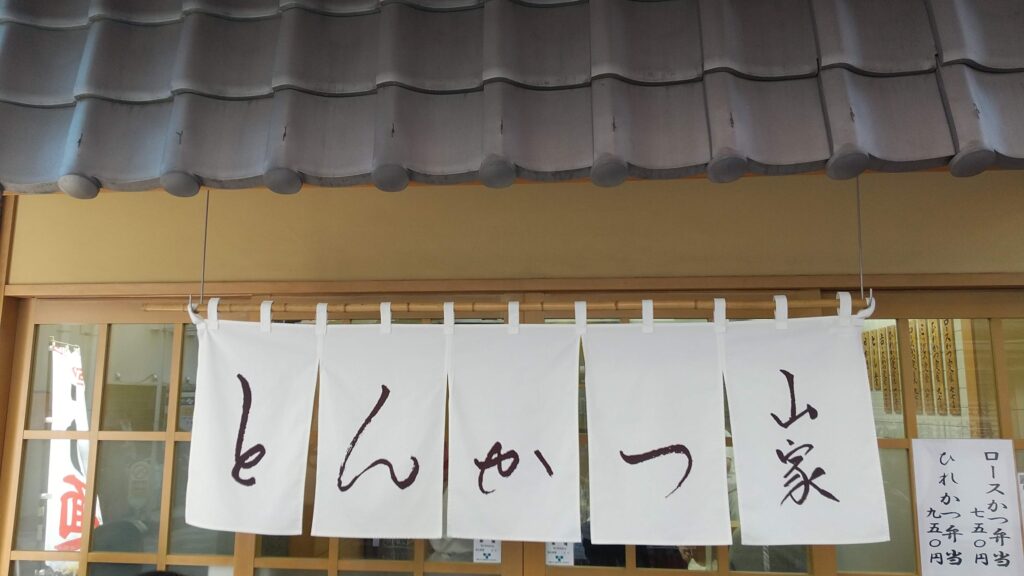 とんかつ
山家
ロースかつ弁当
七五〇円
ひれかつ弁当
九五〇円